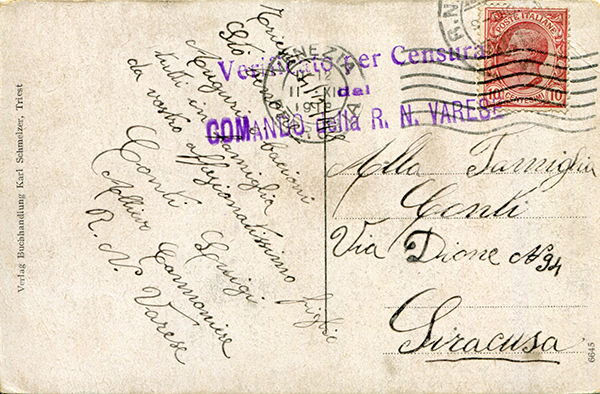 Verlag Buchhandlung Karl Schmelzer, Triest
Auguri bacioni
tutti in famiglia
da vostro affezionatissimo figlio
Conti Luigi
Allievo Cannoniere
R. N. Varese
Verificato per Censura
dal
COMANDO della R. N. VARESE
VENEZIA
12
11 XI
R. N.
POSTE ITALIANE
10 10
CENTESIMI
Alla Famiglia
Conti
Via Dione N 94
Siracusa
6645